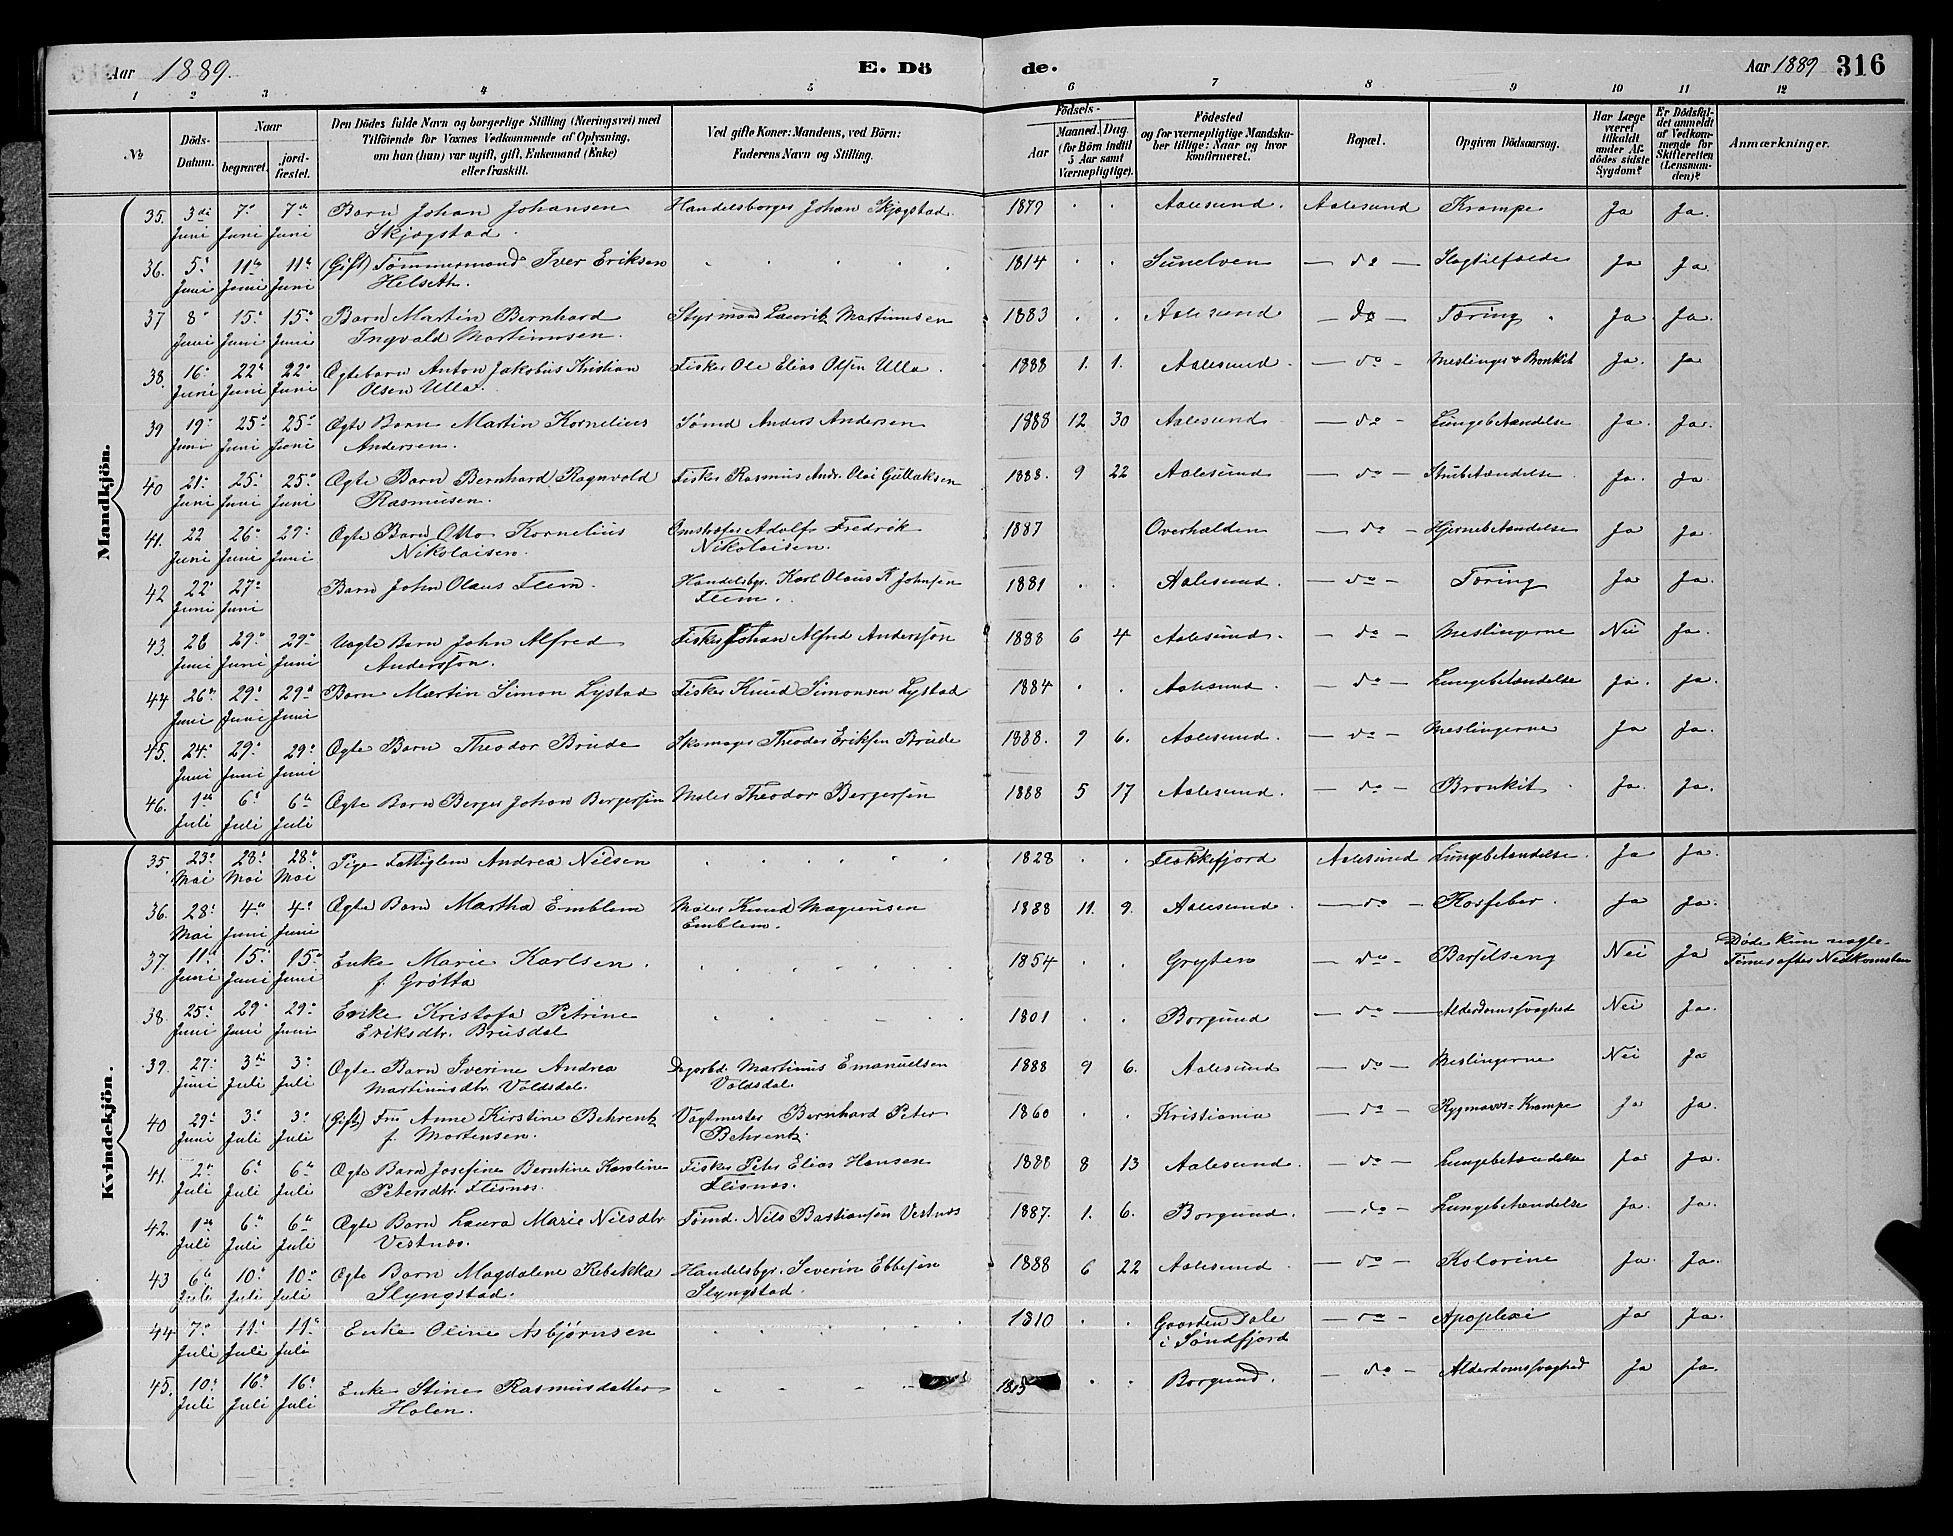 Aar 1889. E. Dö de. Aar 1889 316
1 2 3 4 5 6 7 8 9 10 11 12
No Döds-Datum. Naar begravet. jord-fæstet. Den Dödes fulde Navn og borgerlige Stilling (Næringsvei) med Tilföiende for Voxnes Vedkommende af Oplysning, om han (hun) var ugift, gift, Enkemand (Enke) eller fraskilt. Ved gifte Koner: Mandens, ved Börn: Faderens Navn og Stilling. Födsels- Aar Maaned. Dag. (for Börn indtil 5 Aar samt Værnepligtige). Födested og for værnepligtige Mandskaber tillige: Naar og hvor konfirmeret. Bopæl. Opgiven Dödsaarsag. Har Læge været tilkaldt under Afdödes sidste Sygdom? Er Dödsfaldet anmeldt af Vedkommende for Skifteretten (Lensmanden)? Anmærkninger.
Mandkjön.
35. 3die Juni 7de Juni 7de Juni Barn Johan Johansen Skjøgstad. Handelsborger Johan Skjøgstad. 1879 Aalesund. Aalesund Krampe Ja Ja.
36. 5te Juni 11te Juni 11te Juni (Gift) Tømmermand Iver Eriksen Helseth. 1814 Sunelven do Slagtilfælde Ja Ja.
37 8de Juni 15de Juni 15de Juni Barn Martin Bernhard Ingvald Martinusen. Styrmand Lauritz Martinusen 1883 Aalesund do Tæring Ja Ja.
38. 16de Juni 22de Juni 22de Juni Ægtebarn Anton Jakobus Kristian Olsen Ulla. Fisker Ole Elias Olsen Ulla. 1888 1. 1. Aalesund. do Meslinger & Bronkit Ja. Ja
39 19de Juni 25de Juni 25de Juni Ægte Barn Martin Kornelius Andersen. Tømd Anders Andersen 1888 12 30 Aalesund do Lungebetændelse Ja. Ja.
40 21de Juni 25de Juni 25de Juni Ægte Barn Bernhard Ragnvald Rasmusen. Fisker Rasmus Andr. Olai Gullaksen 1888. 9 22 Aalesund do Strubetændelse Ja. Ja.
41. 22 Juni 26de Juni 29de Juni Ægte Barn Otto Kornelius Nikolaisen. Adolf Fredrik Nikolaisen. 1887 Overhalden do Hjernebetændelse Ja Ja.
42 22de Juni 27de Juni Barn John Olaus Flem. Handelsbgr. Karl Olaus K Johnsen Flem. 1881 Aalesund. do Tæring Ja Ja.
43. 26 Juni 29de Juni 29de Juni Uægte Barn John Alfred Andersson. Fisker Johan Alfred Andersson 1888 6 4 Aalesund. do Meslingerne Nei Ja.
44 26de Juni 29de Juni 29de Juni Barn Martin Simon Lystad Fisker Knud Simonsen Lystad 1884 Aalesund. do Lungebetændelse Ja. Ja.
45. 24de Juni 29de Juni 29de Juni Ægte Barn Theodor Brude Skomager Theodor Eriksen Brude 1888. 9 6. Aalesund. do Meslingerne Ja Ja.
46. 1ste Juli 6te Juli 6te Juli Ægte Barn Berger Johan Bergersen Maler Theodor Bergersen 1888 5 17 Aalesund. do Bronkit Ja. Ja.
Kvindekjön.
35 23de Mai 28de Mai 28de Mai Pige Fattiglem Andrea Nilsen 1828 Flekkefjord Aalesund Lungebetændelse. Ja Ja.
36. 28de Mai 4de Juni 4de Juni Ægte Barn Martha Emblem Maler Knud Magnusen Emblem. 1888 11. 9. Aalesund. do Ja Ja.
37. 11te Juni 15de Juni 15de Juni Enke Marie Karlsen. f. Grøtta 1854 Gryten do Barselseng Nei Ja Døde kun nogle Timer efter Nedkomsten
38. 25de Juni 29de Juni 29de Juni Enke Kristofa Petrine Eriksdtr. Brusdal 1801 Borgund do Alderdomssvaghed Nei Ja.
39. 27de Juni 3die Juli 3die Juli Ægte Barn Iverine Andrea Martinusdtr. Valdsdal. Martinus Emanuelsen Valdsdal. 1888 9 6. Aalesund do Meslingerne Nei Ja
40 29de Juni 3die Juli 3die Juli (Gift) Fru Anne Kirstine Behrentz f. Mortensen. Vagtmester Bernhard Peter Behrentz. 1860 Kristiania do Rygmarvs-Krampe Ja Ja.
41. 2den Juli 6te Juli 6te Juli Ægte Barn Josefine Berntine Karoline Petersdtr. Flisnæs. Fisker Peter Elias Hansen Flisnæs. 1888 8 13 Aalesund. do Lungebetændelse Ja Ja.
42. 1ste Juli 6te Juli 6te Juli Ægte Barn Laura Marie Nilsdtr Vestnæs. Tømd. Nils Bastiansen Vestnæs 1887. 1. 6. Borgund. do Lungebetændelse Ja. Ja.
43 6te Juli 10de Juli 10de Juli Ægte Barn Magdalene Rebekka Slyngstad. Handelsbgr. Severin Ebbesen Slyngstad. 1888 6 22 Aalesund. do Kolorine Ja. Ja.
44 7de Juli 11te Juli 11te Juli Enke Oline Asbjørnsen 1810 Gaarden Dale i Søndfjord do Apoplexi Ja Ja.
45. 10de Juli 16de Juli 16de Juli Enke Stine Rasmusdatter Holen. Borgund. do Alderdomssvaghed Ja Ja.